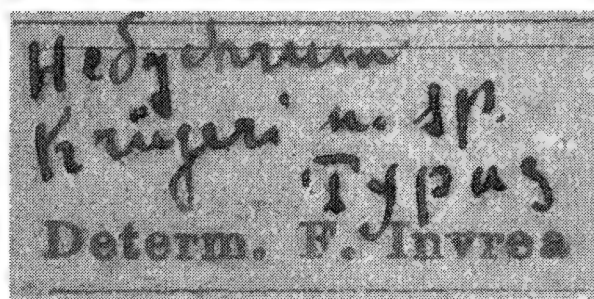 Hedychrum
Krügeri n. sp.
Typus
Determ. F. Invrea